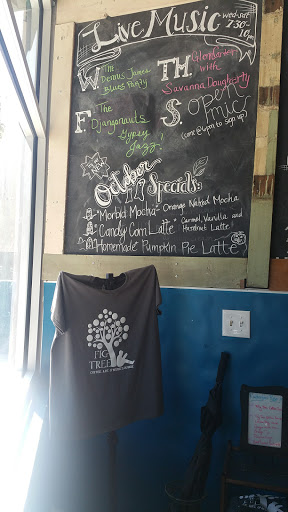 Live Music wed-sat
7:30-
10pm
W. The
Dennis James
Blues Party
TH. Glen Carter
with
Savanna Dougherty
F. The
Djangonauts
Gypsy
Jazz!
S. Open
mic
(come @ 6pm to sign up)
October
Specials:
"Morbid Mocha" - Orange Naked Mocha
"Candy Corn Latte" - Carmel, Vanilla and
Hazelnut Latte
Homemade Pumpkin Pie Latte
FIG
TREE